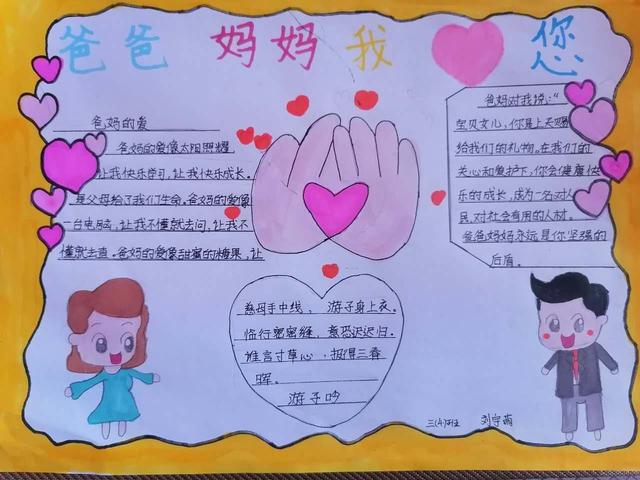 爸爸 妈妈 我 您
爸妈的爱
爸妈的爱像太阳照耀
让我快乐学习,让我快乐成长。
是父母给了我们生命。爸妈的爱像
一台电脑,让我不懂就去问,让我不
懂就去查。爸妈的爱像甜蜜的糖果,让
慈母手中线, 游子身上衣。
临行密密缝,意恐迟迟归。
谁言寸草心,报得三春
晖。
游子吟
爸妈对我说:“
宝贝女儿,你是上天赐
给我们的礼物。在我们的
关心和爱护下,你会健康快
乐的成长,成为一名对人
民,对社会有用的人材。
爸爸妈妈永远是你坚强的
后盾。
三(4)班 刘宇萌